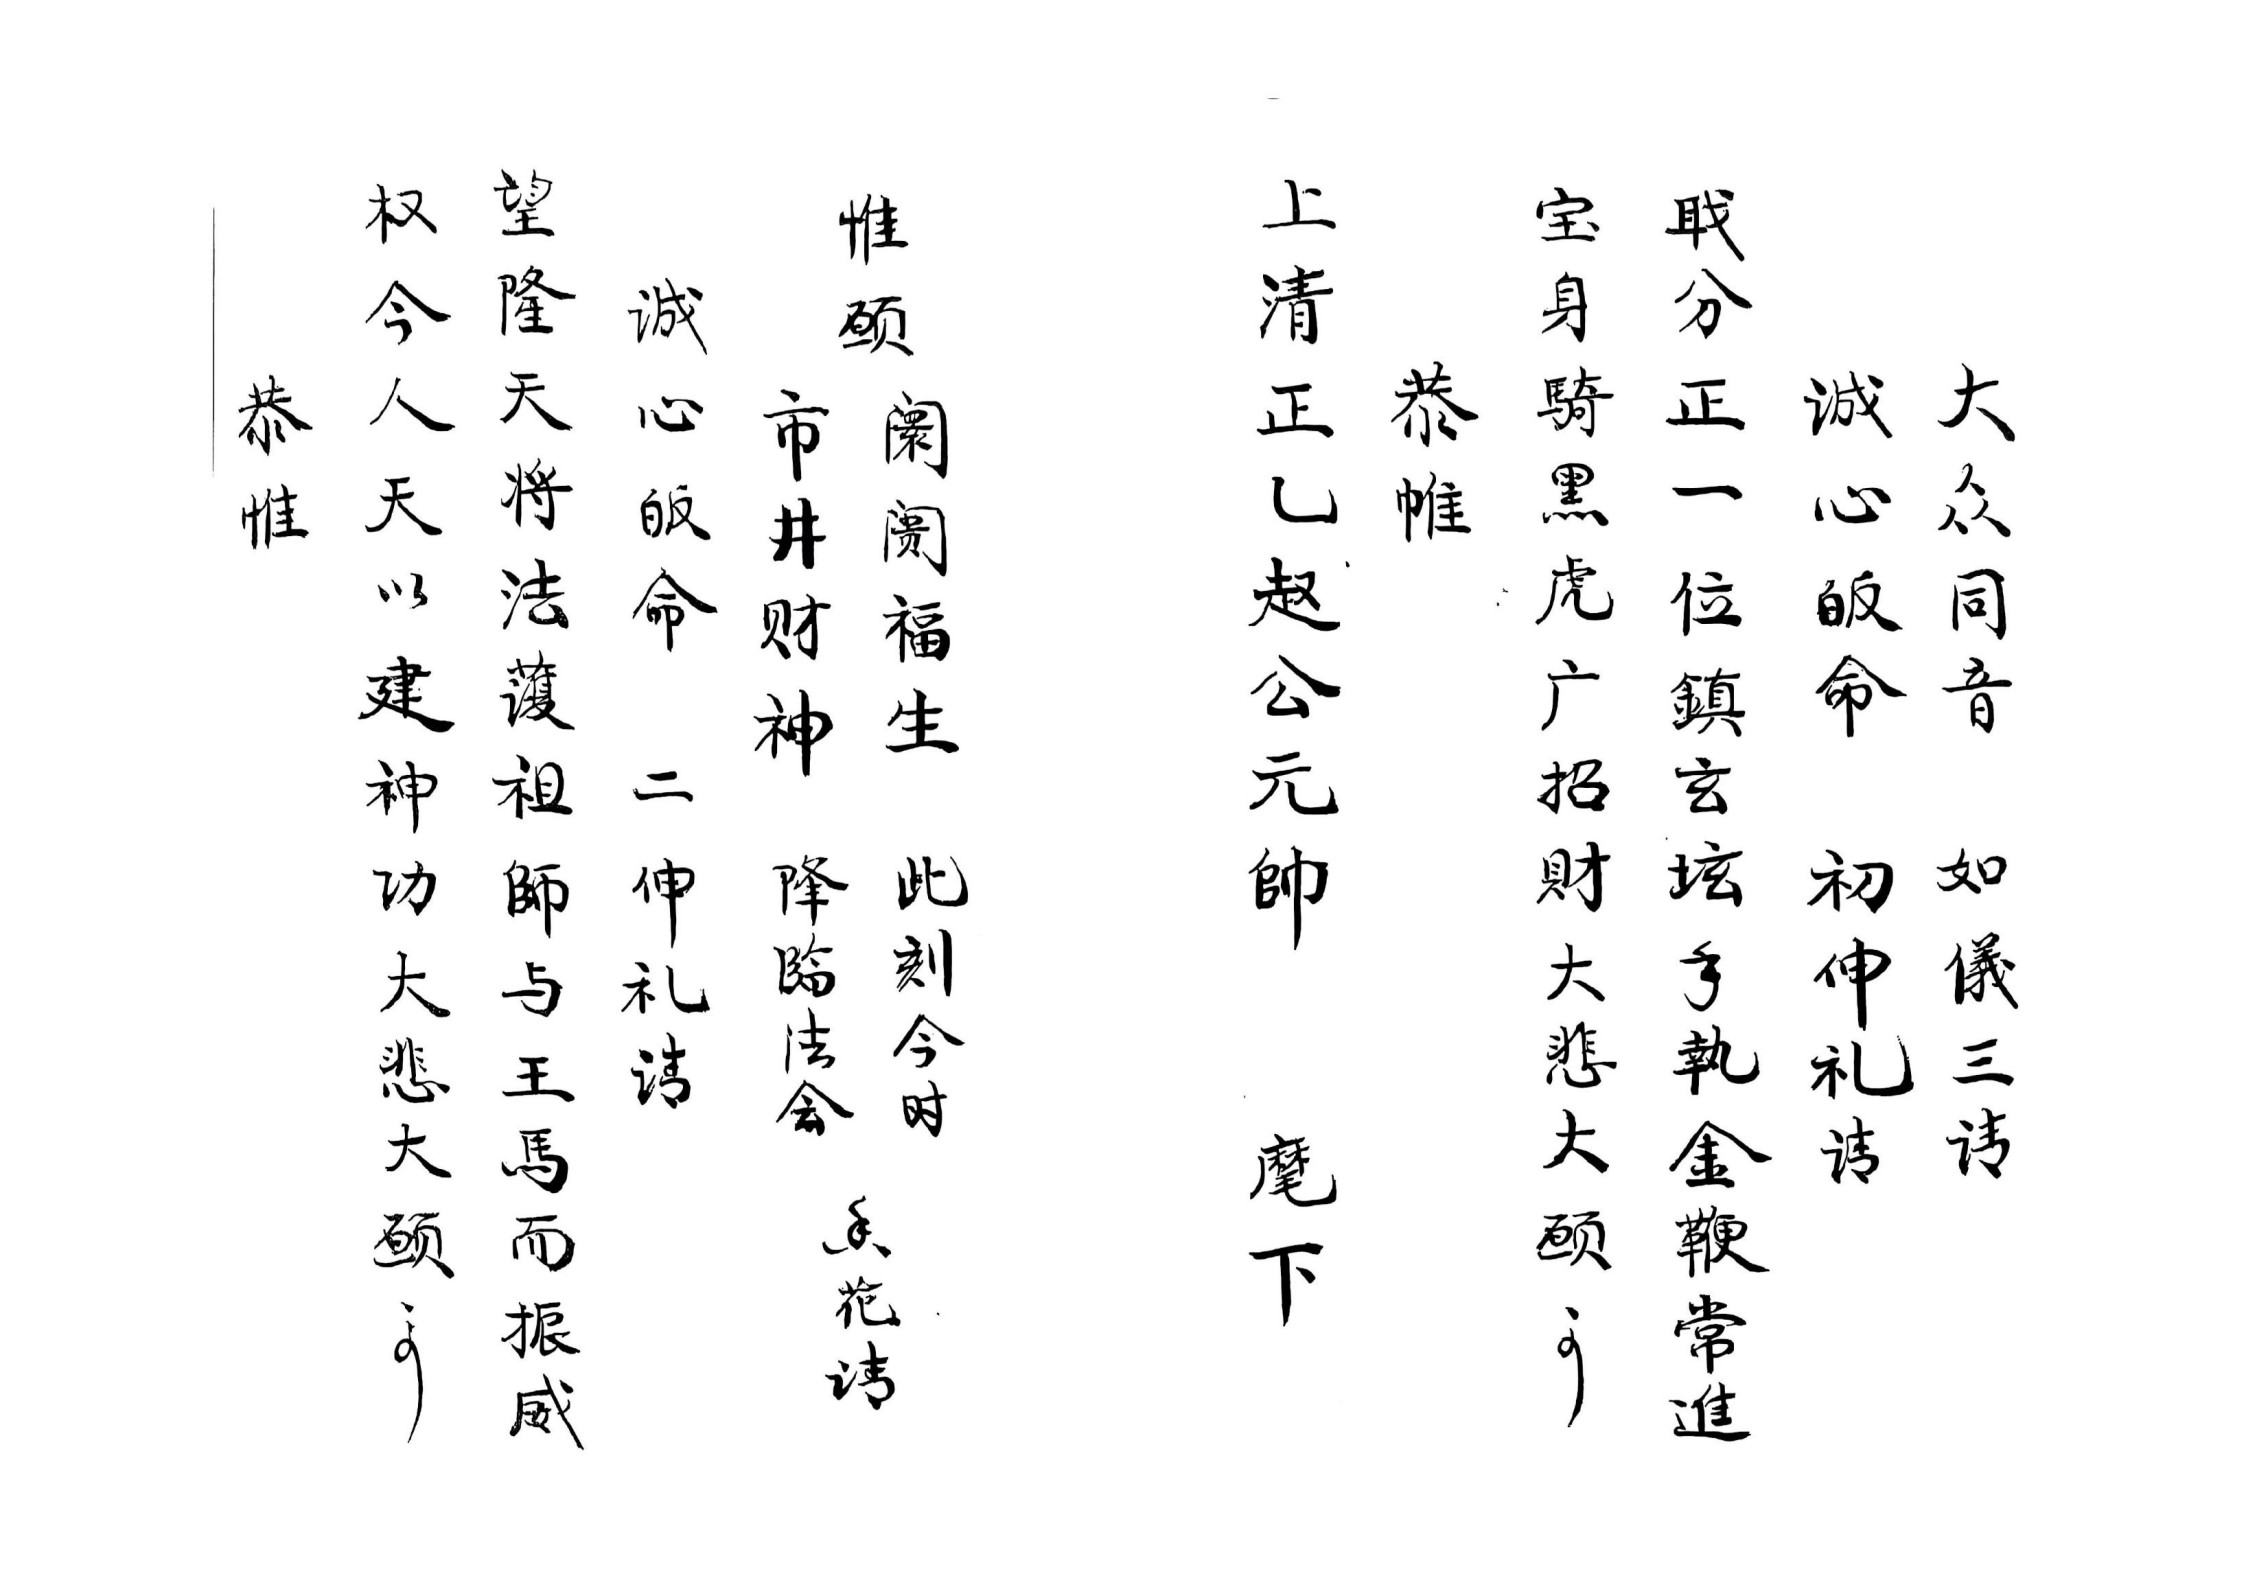 大众同音 如儀三请
诚心皈命 初伸礼请
职分正一位鎮玄坛手執金鞭常進
宝身騎黑虎广招財大悲大願
恭帷
上清正乙赵公元帥 麾下
惟願
阛阓福生 此刻今时
市井财神 降臨法会
香花请
诚心皈命 二伸礼请
望隆天将法護祖師与王馬而振威
权今人天以建神功大悲大願
恭惟